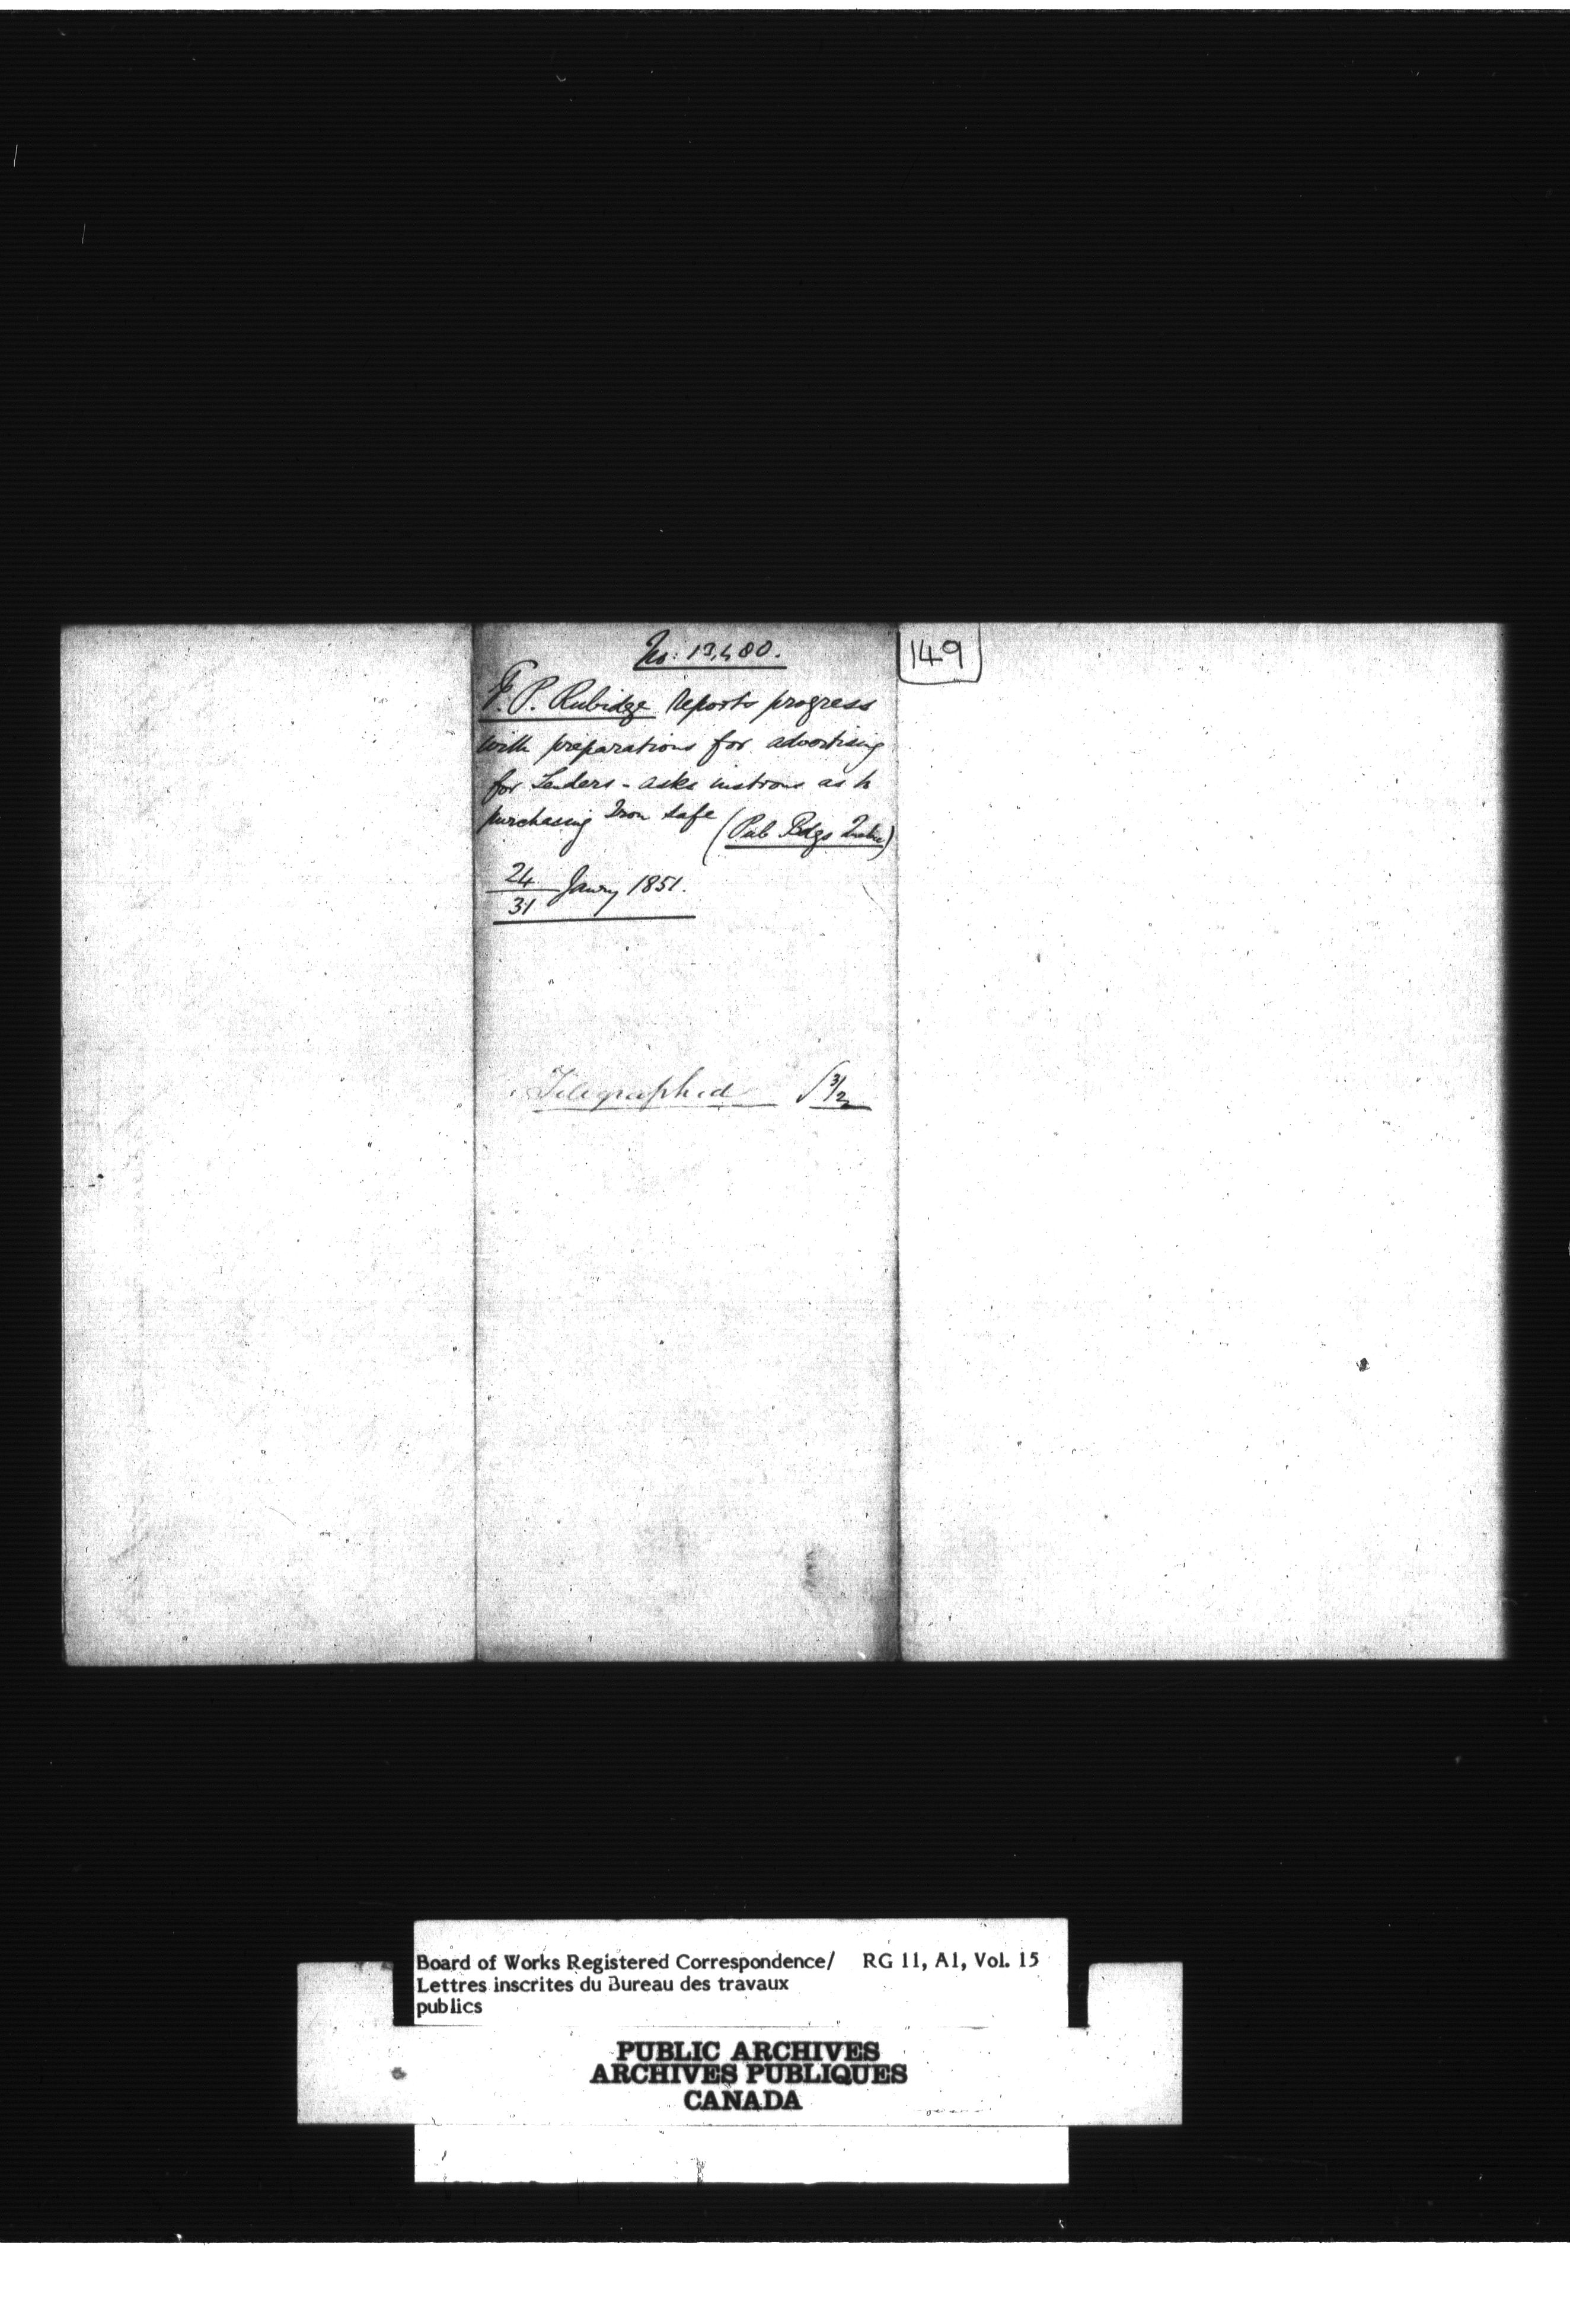 No: 13,480.
149
F. P. Rubidge Reports progress
with preparations for advertising
for Tenders - asks instrons as to
purchasing Iron Safe (Pub Bdgs Quebec)
24 Janry 1851.
31
Telegraphed 3/2
Board of Works Registered Correspondence/ RG 11, A1, Vol. 15
Lettres inscrites du Bureau des travaux
publics
PUBLIC ARCHIVES
ARCHIVES PUBLIQUES
CANADA